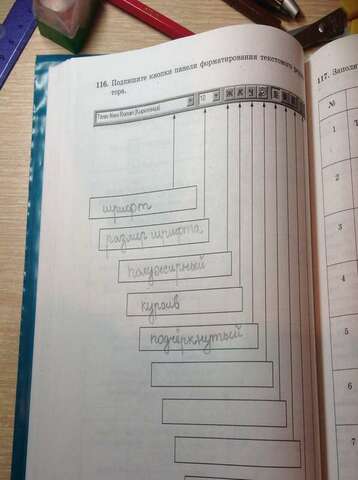 116. Подпишите кнопки панели форматирования текстового
тора.
117. Запол
Times New Roman (Кириллица)
10
Ж К Ч
№
1
2
3
4
5
6
7
шрифт
размер шрифта
полужирный
курсив
подчёркнутый